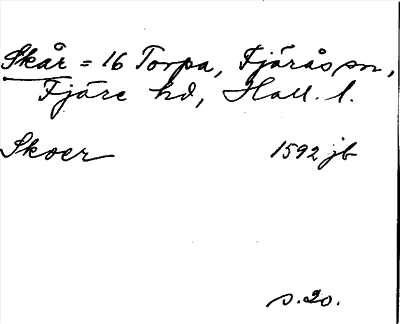 Skår = 16 Torpa, Fjärås sn,
Fjäre hd, Hall. l.
Skoer 1592 jb
s. 20.